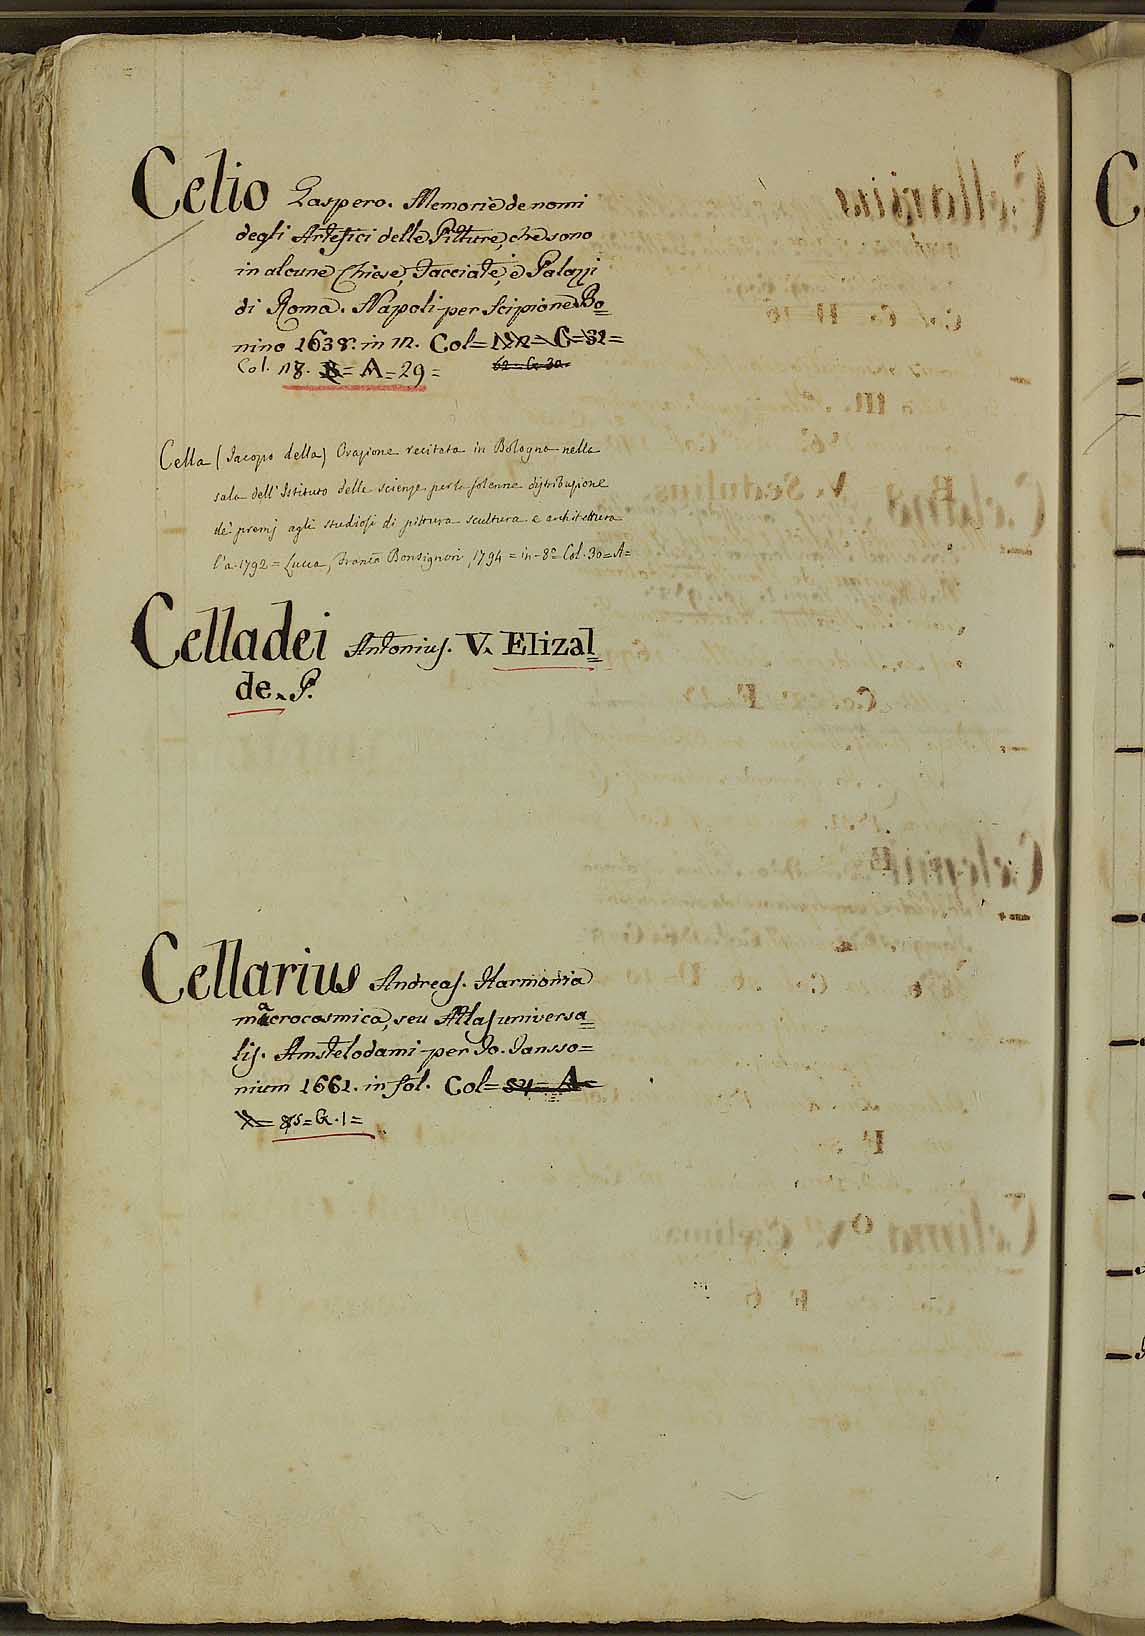 Celio Gaspero. Memorie de nomi
degli Artefici delle Pitture, che sono
in alcune Chiese, Facciate, e Palazzi
di Roma. Napoli per Scipione Bo=
nino 1638. in 12. Col= C=32=
Col. 18. A=29=
62=G.30.
Cella (Jacopo della) Orazione recitata in Bologna nella
sala dell'Istituto delle scienze per la solenne distribuzione
de' premj agli studiosi di pittura scultura e architettura
l'a. 1792 = Lucca, Franc.o Bonsignori, 1794 = in-8.o Col. 30=A=
Celladei Antonius. V. Elizal=
de. P.
Cellarius Andreas. Harmonia
macrocosmica, seu Atlas universa=
lis. Amstelodami per Jo. Jansso=
nium 1661. in fol. Col= 84= A=
85=G.1=